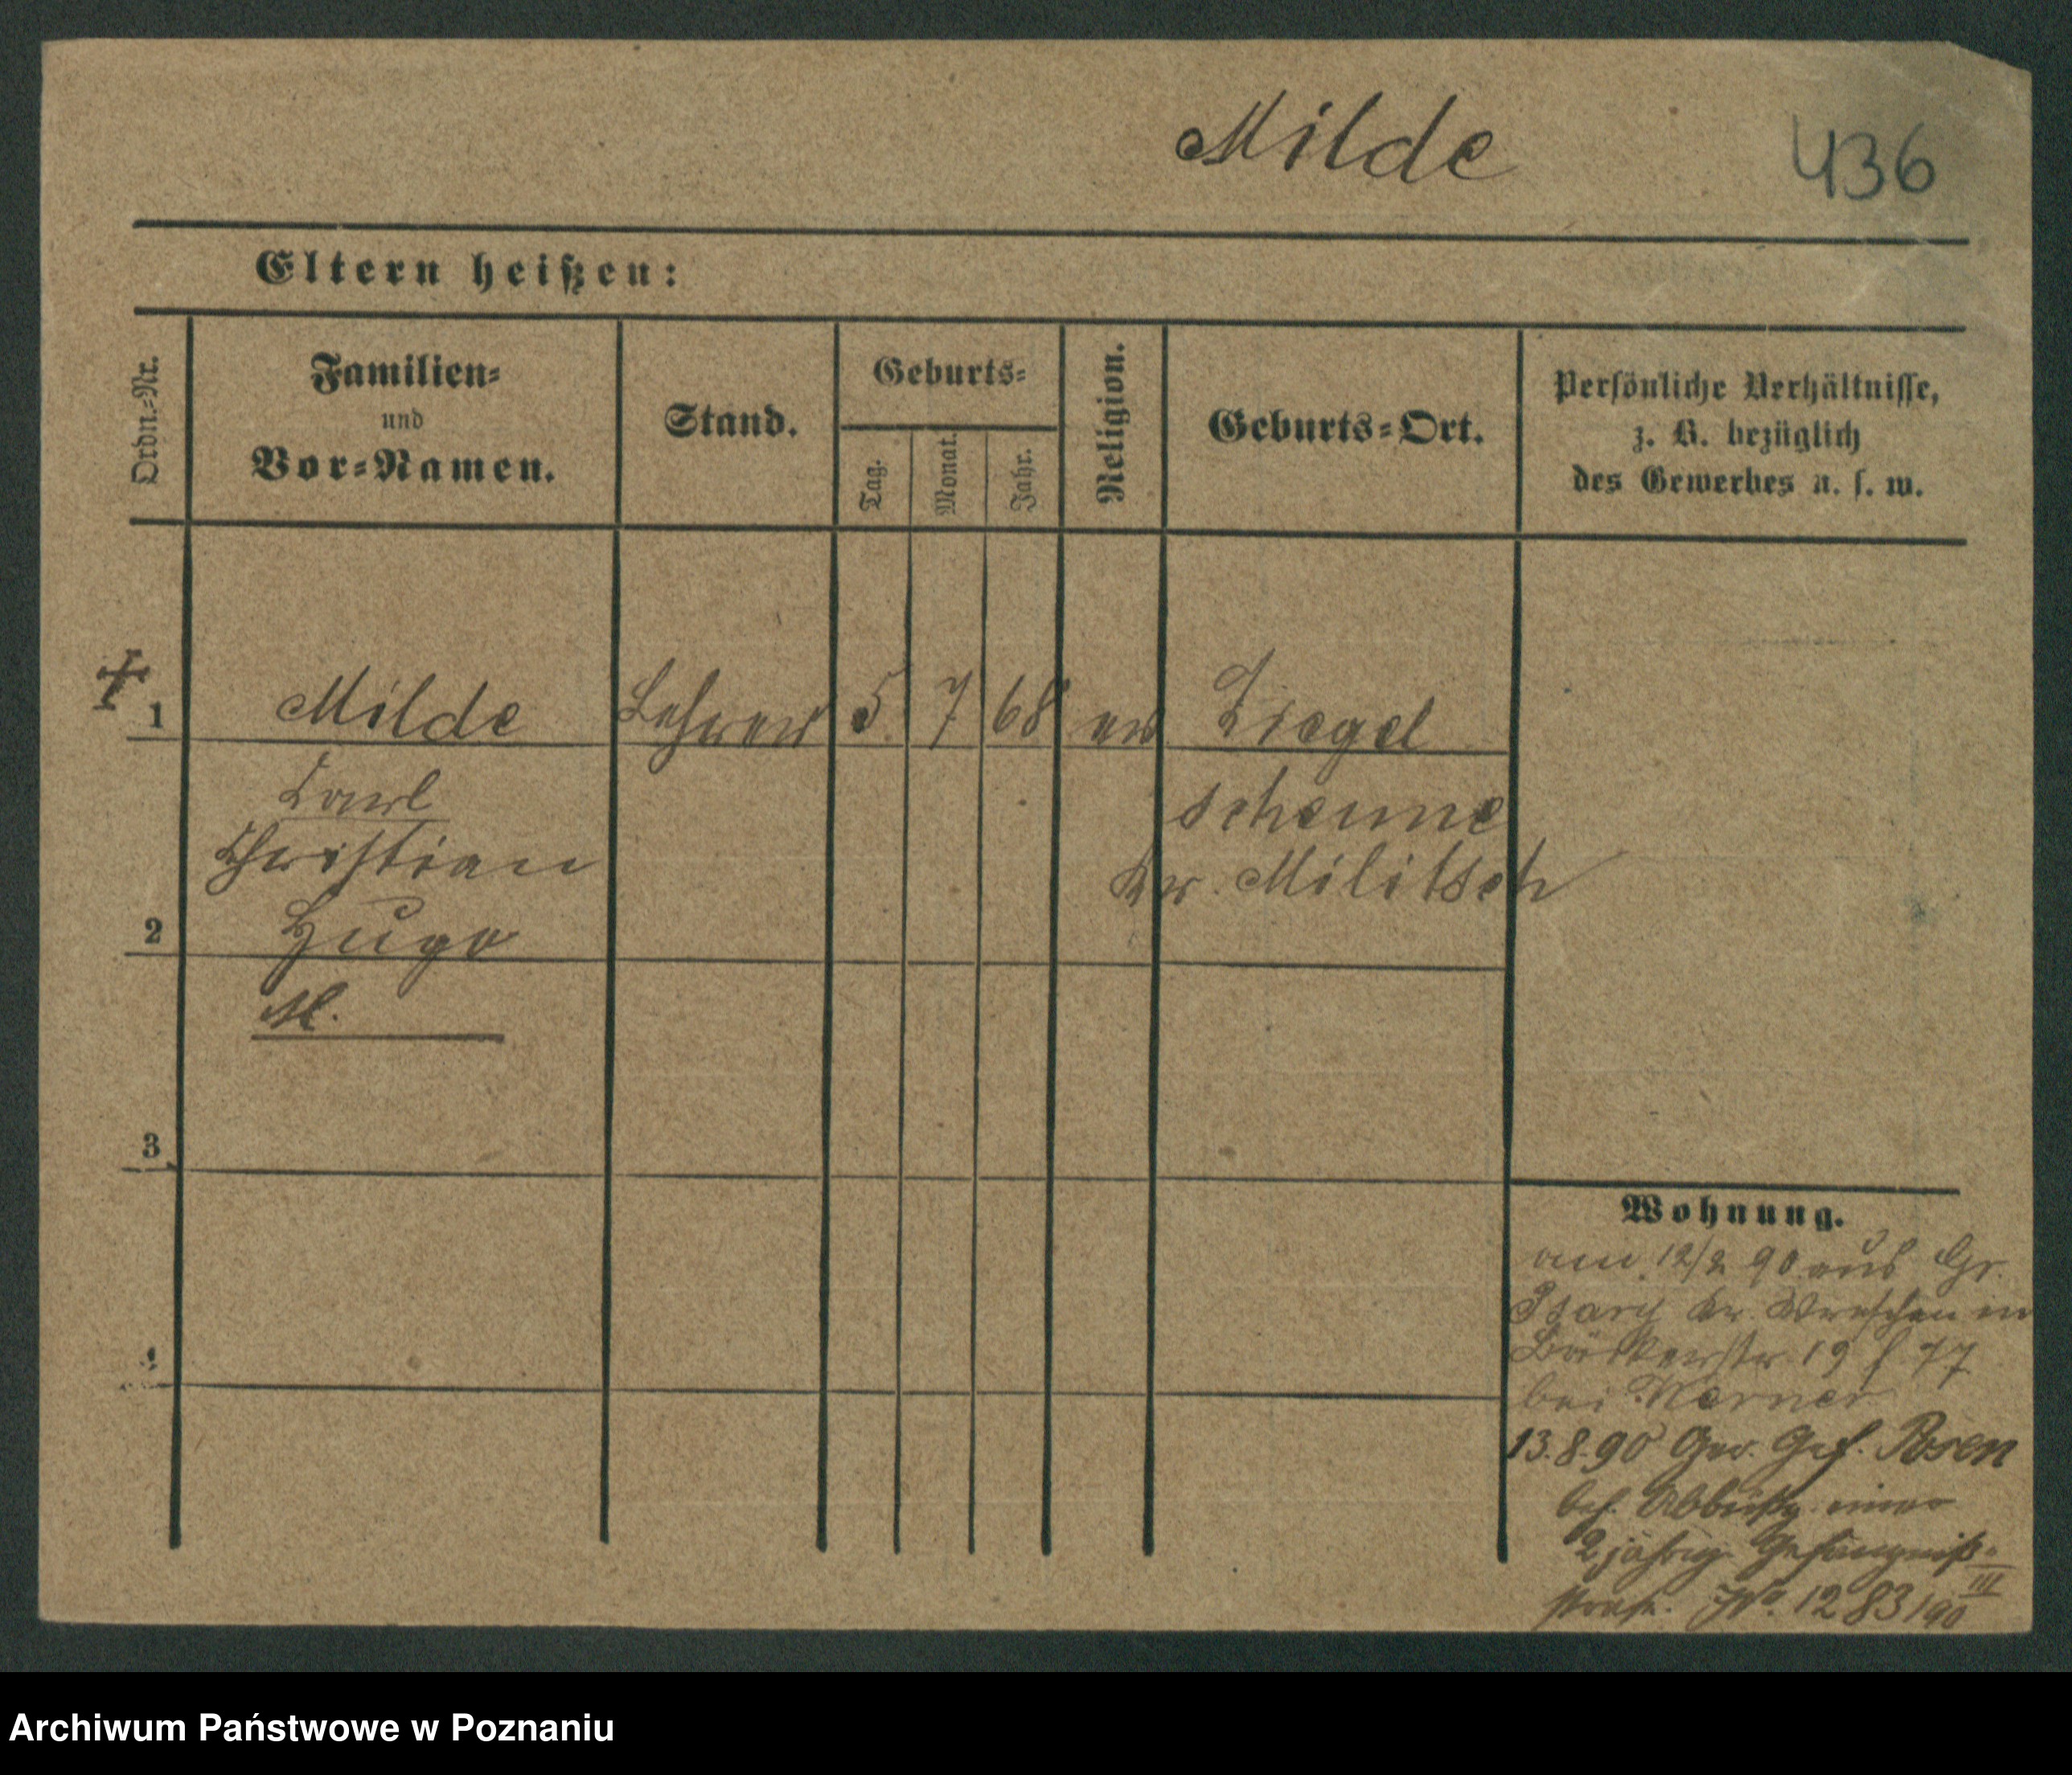 Milde 436
Eltern heißen:
Ordn.-Nr.
Familien-
und
Vor-Namen.
Stand.
Geburts-
Tag.
Monat.
Jahr.
Religion.
Geburts-Ort.
Persönliche Verhältnisse,
z. B. bezüglich
des Gewerbes u. s. w.
1 Milde Lehrer 5 7 68 ev Ziegel
Carl scheune
Christian Kr. Militsch
2 Hugo
M.
3
4
Wohnung.
am 12/2 90 aus Gr.
Kr. Wreschen in
19 f 77
bei Werner
13.8.90 Ger. Gef. Posen
beh. Abbüßg. einer
2 jährig. Gefängniß-
strafe. No. 1283/90 III
Archiwum Państwowe w Poznaniu